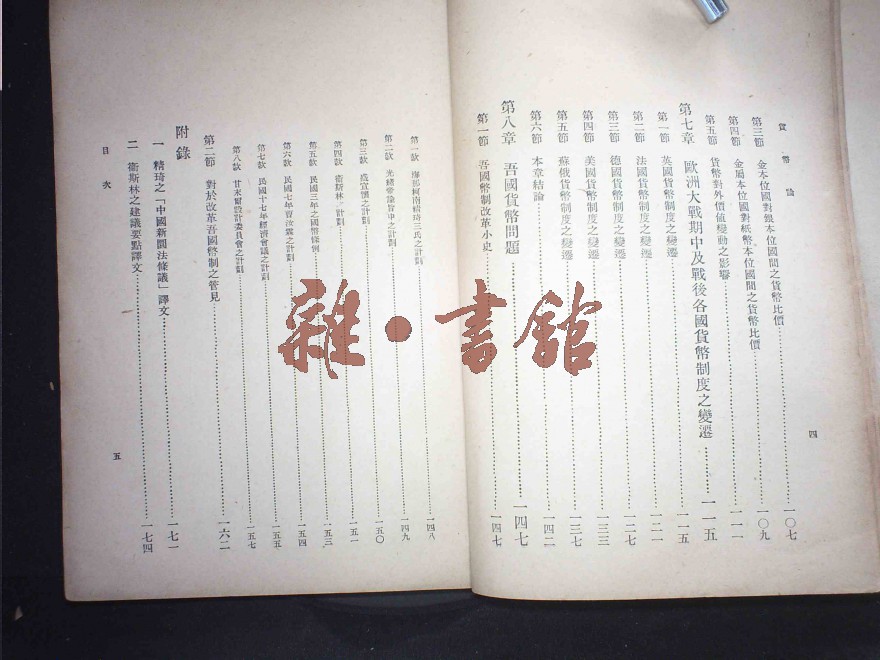 貨幣論
四
第三節 金本位國對銀本位國間之貨幣比價 一〇七
第四節 金屬本位國對紙幣本位國間之貨幣比價 一〇九
第五節 貨幣對外價値變動之影響 一一一
第七章 歐洲大戰期中及戰後各國貨幣制度之變遷 一一五
第一節 英國貨幣制度之變遷 一一五
第二節 法國貨幣制度之變遷 一二一
第三節 德國貨幣制度之變遷 一二七
第四節 美國貨幣制度之變遷 一三三
第五節 蘇俄貨幣制度之變遷 一三七
第六節 本章結論 一四二
第八章 吾國貨幣問題 一四七
第一節 吾國幣制改革小史 一四七
第一款 精琦三氏之計劃 一四八
第二款 光緖之計劃 一四九
第三款 盛宣懷之計劃 一五〇
第四款 衞斯林之計劃 一五一
第五款 民國三年之國幣條例 一五三
第六款 民國七年曹汝霖之計劃 一五四
第七款 民國十七年經濟會議之計劃 一五五
第八款 甘末爾設計委員會之計劃 一五七
第二節 對於改革吾國幣制之管見 一六二
附錄
一 精琦之「中國新圜法條議」譯文 一七一
二 衞斯林之建議要點譯文 一七四
目次
五
雜·書館